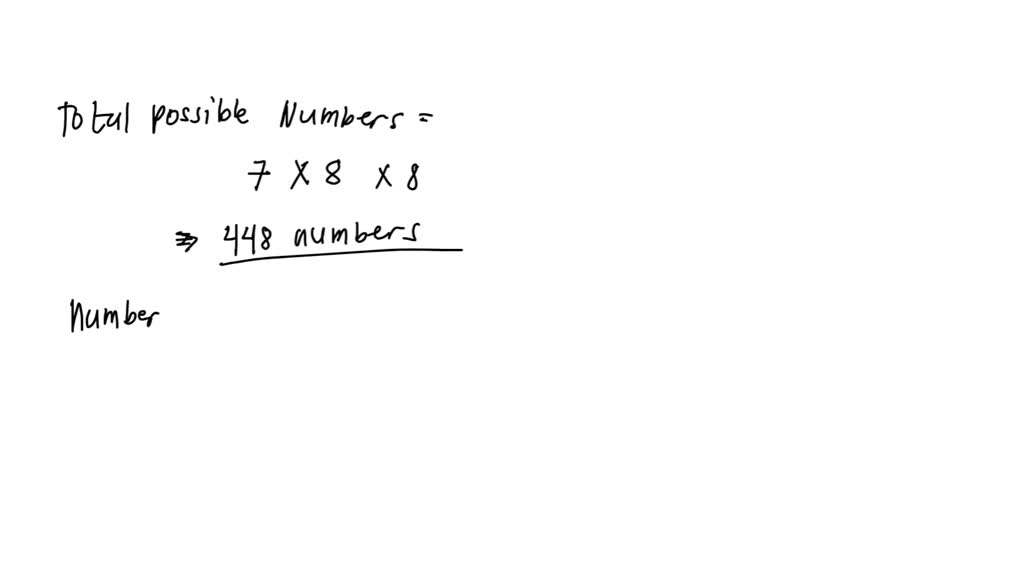 Total possible Numbers =
7 X 8 x 8
⇒ 448 numbers
Number